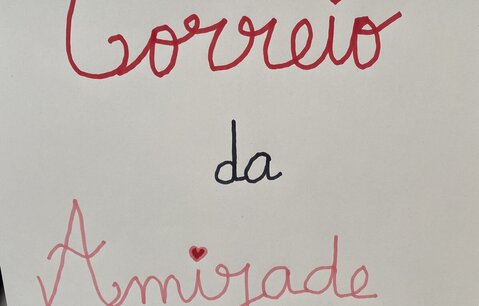 Correio
da
Amizade